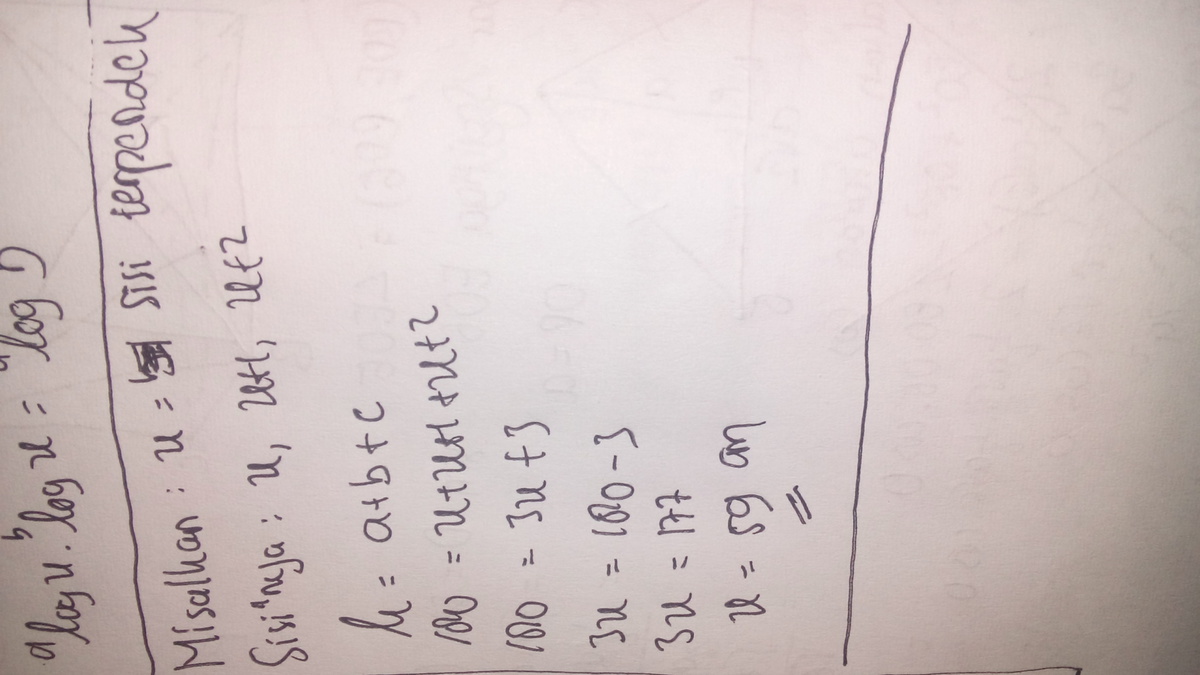 ᵃlog x . ᵇlog x = ᵃlog D
Misalkan : x = sisi terpendek
Sisi"nya : x, x+1, x+2
k = a+b+c
180 = x+x+1+x+2
180 = 3x+3
3x = 180-3
3x = 177
x = 59 cm